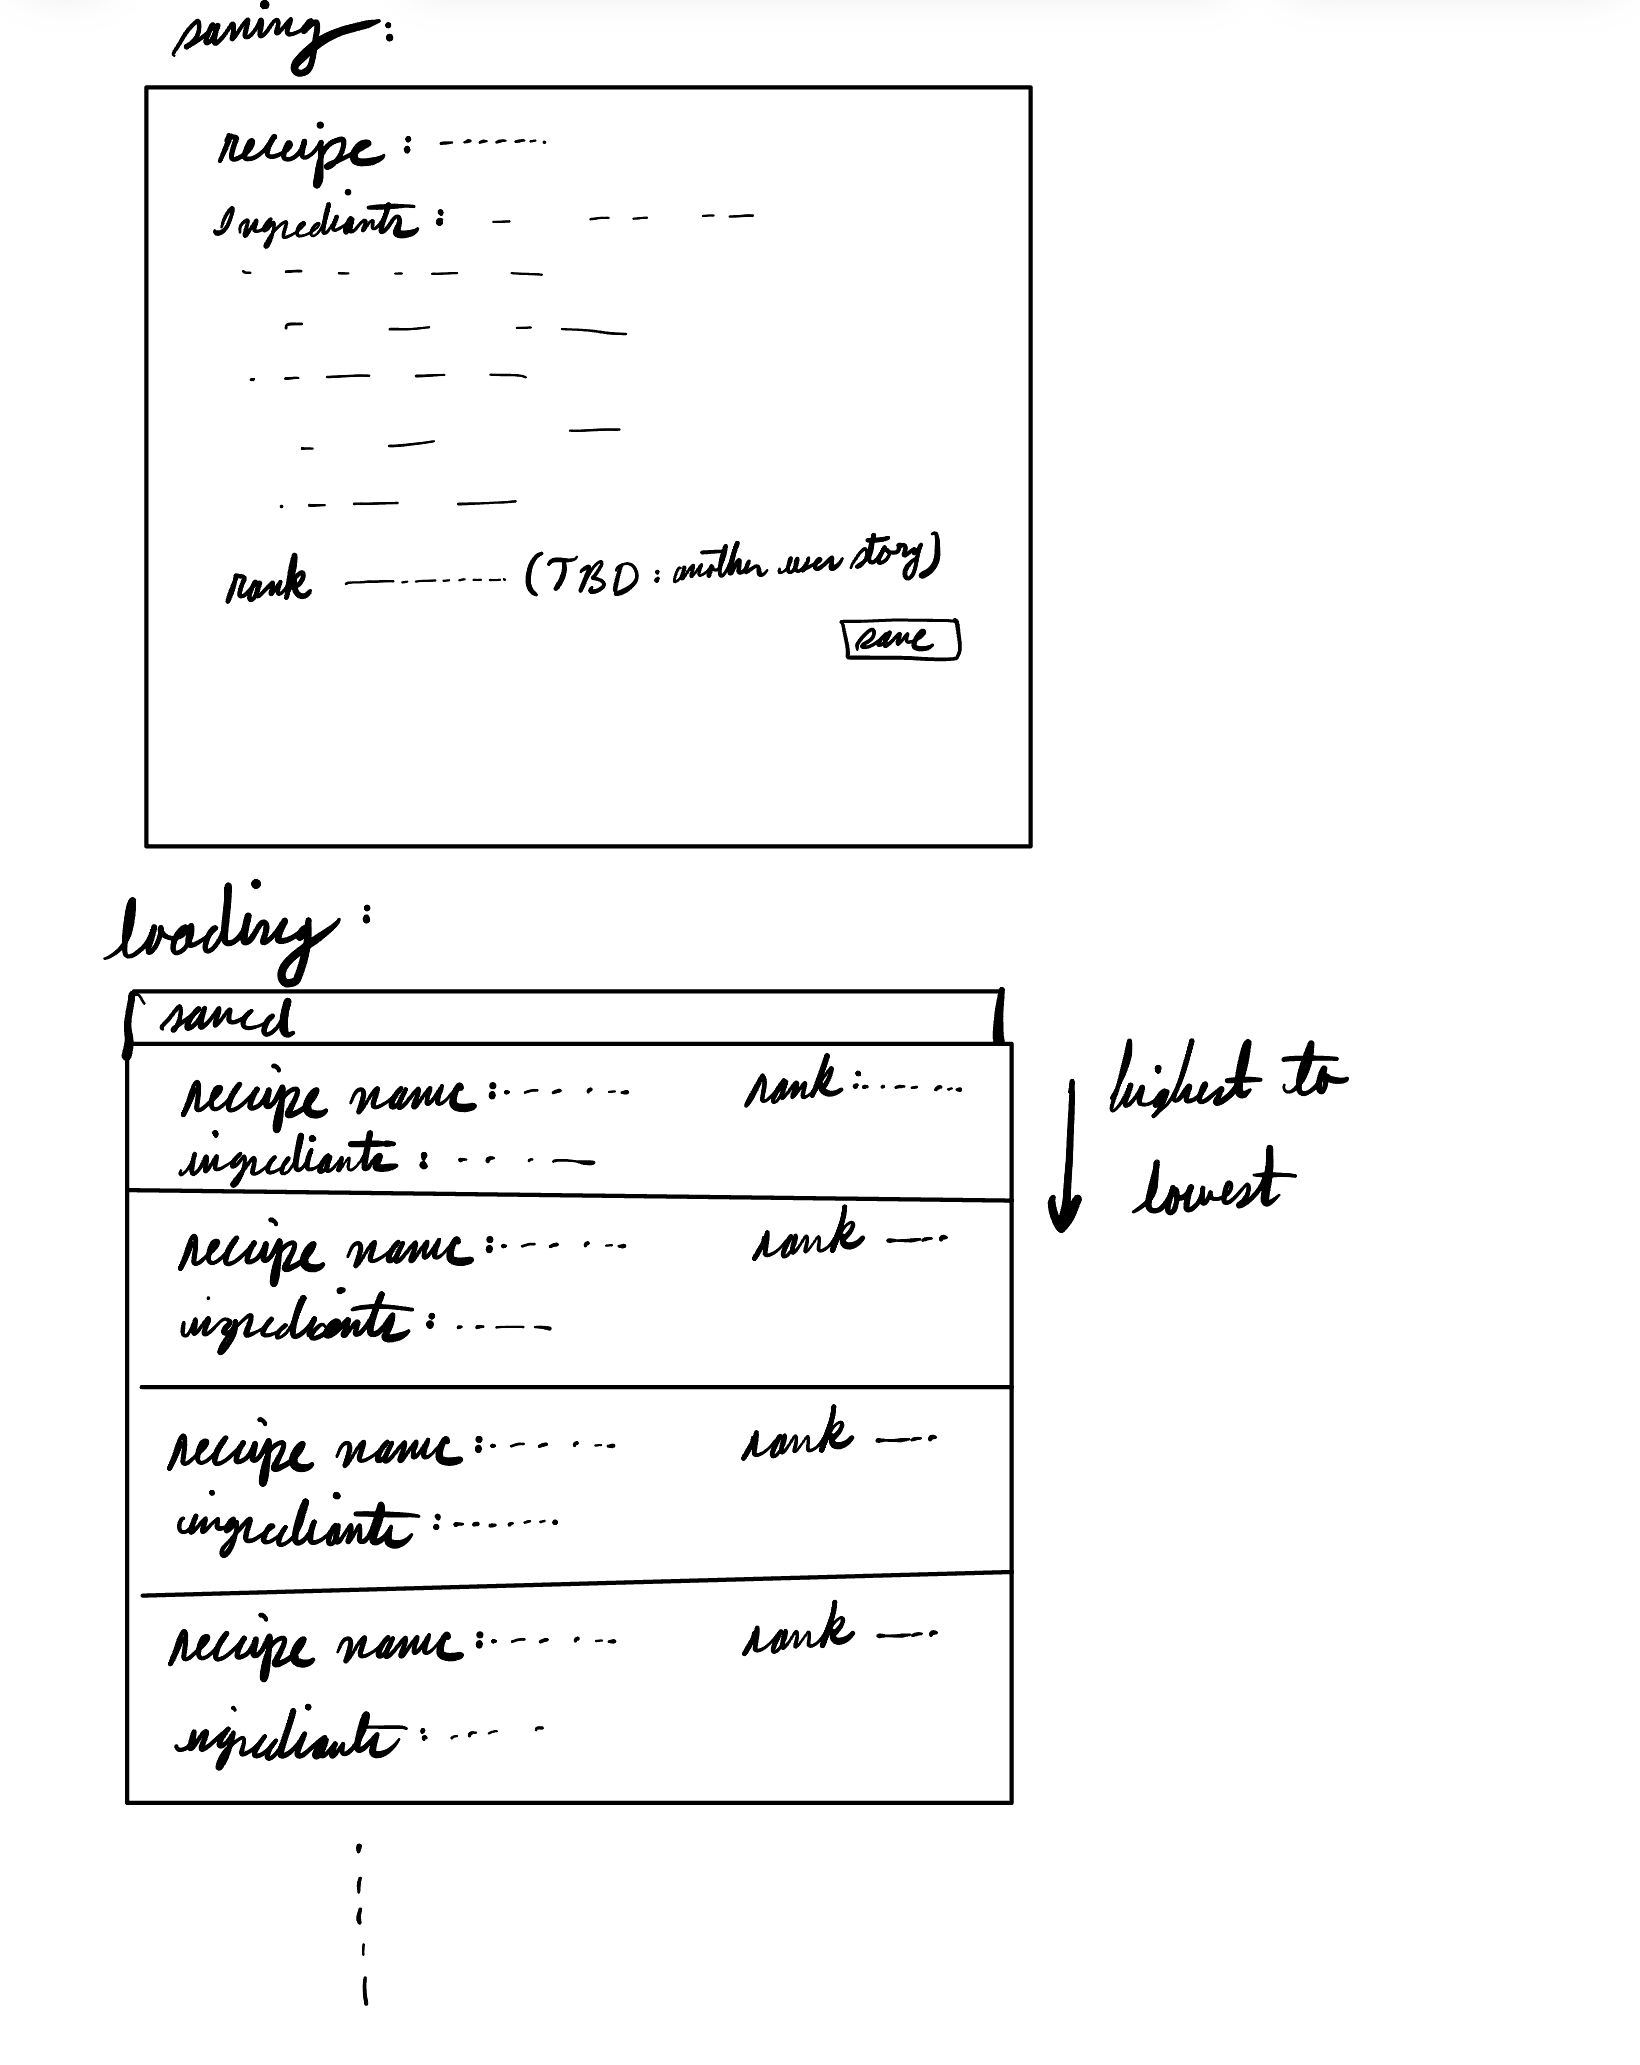 saving:
receipe:
Ingrediants:
rank (TBD: another user story)
save
loading:
saved
receipe name: rank:
ingrediants:
highest to
lowest
receipe name: rank
ingrediants:
receipe name: rank
ingrediants:
receipe name: rank
ingrediants: